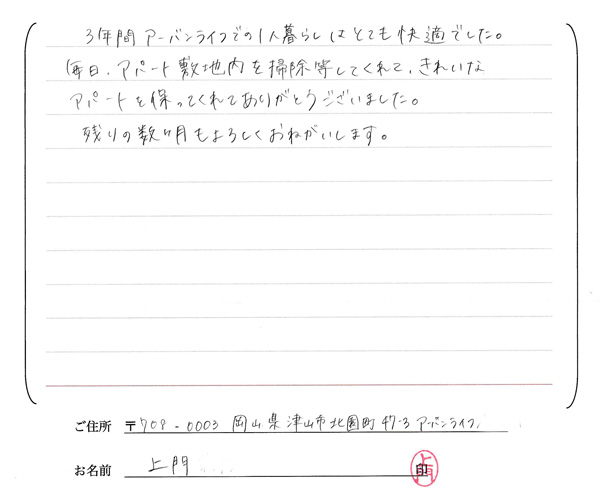 3年間アーバンライフでの1人暮らしはとても快適でした。
毎日、アパート敷地内を掃除等してくれて、きれいな
アパートを保ってくれてありがとうございました。
残りの数ヶ月もよろしくおねがいします。
ご住所 〒709-0003 岡山県津山市北園町47-3 アーバンライフ
お名前 上門 印